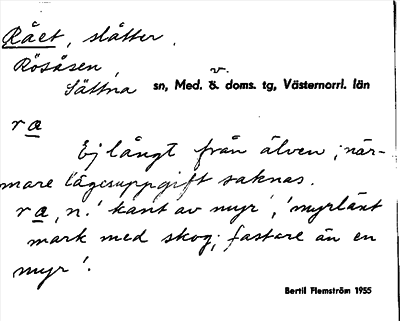 Rået, slåtter.
Rösåsen,
Sättna sn, Med. v. doms. tg, Västernorrl. län
ræ
Ej långt från älven; när-
mare lägesuppgift saknas.
ræ, n. 'kant av myr', 'myrlänt
mark med skog; fastare än en
myr'.
Bertil Flemström 1955